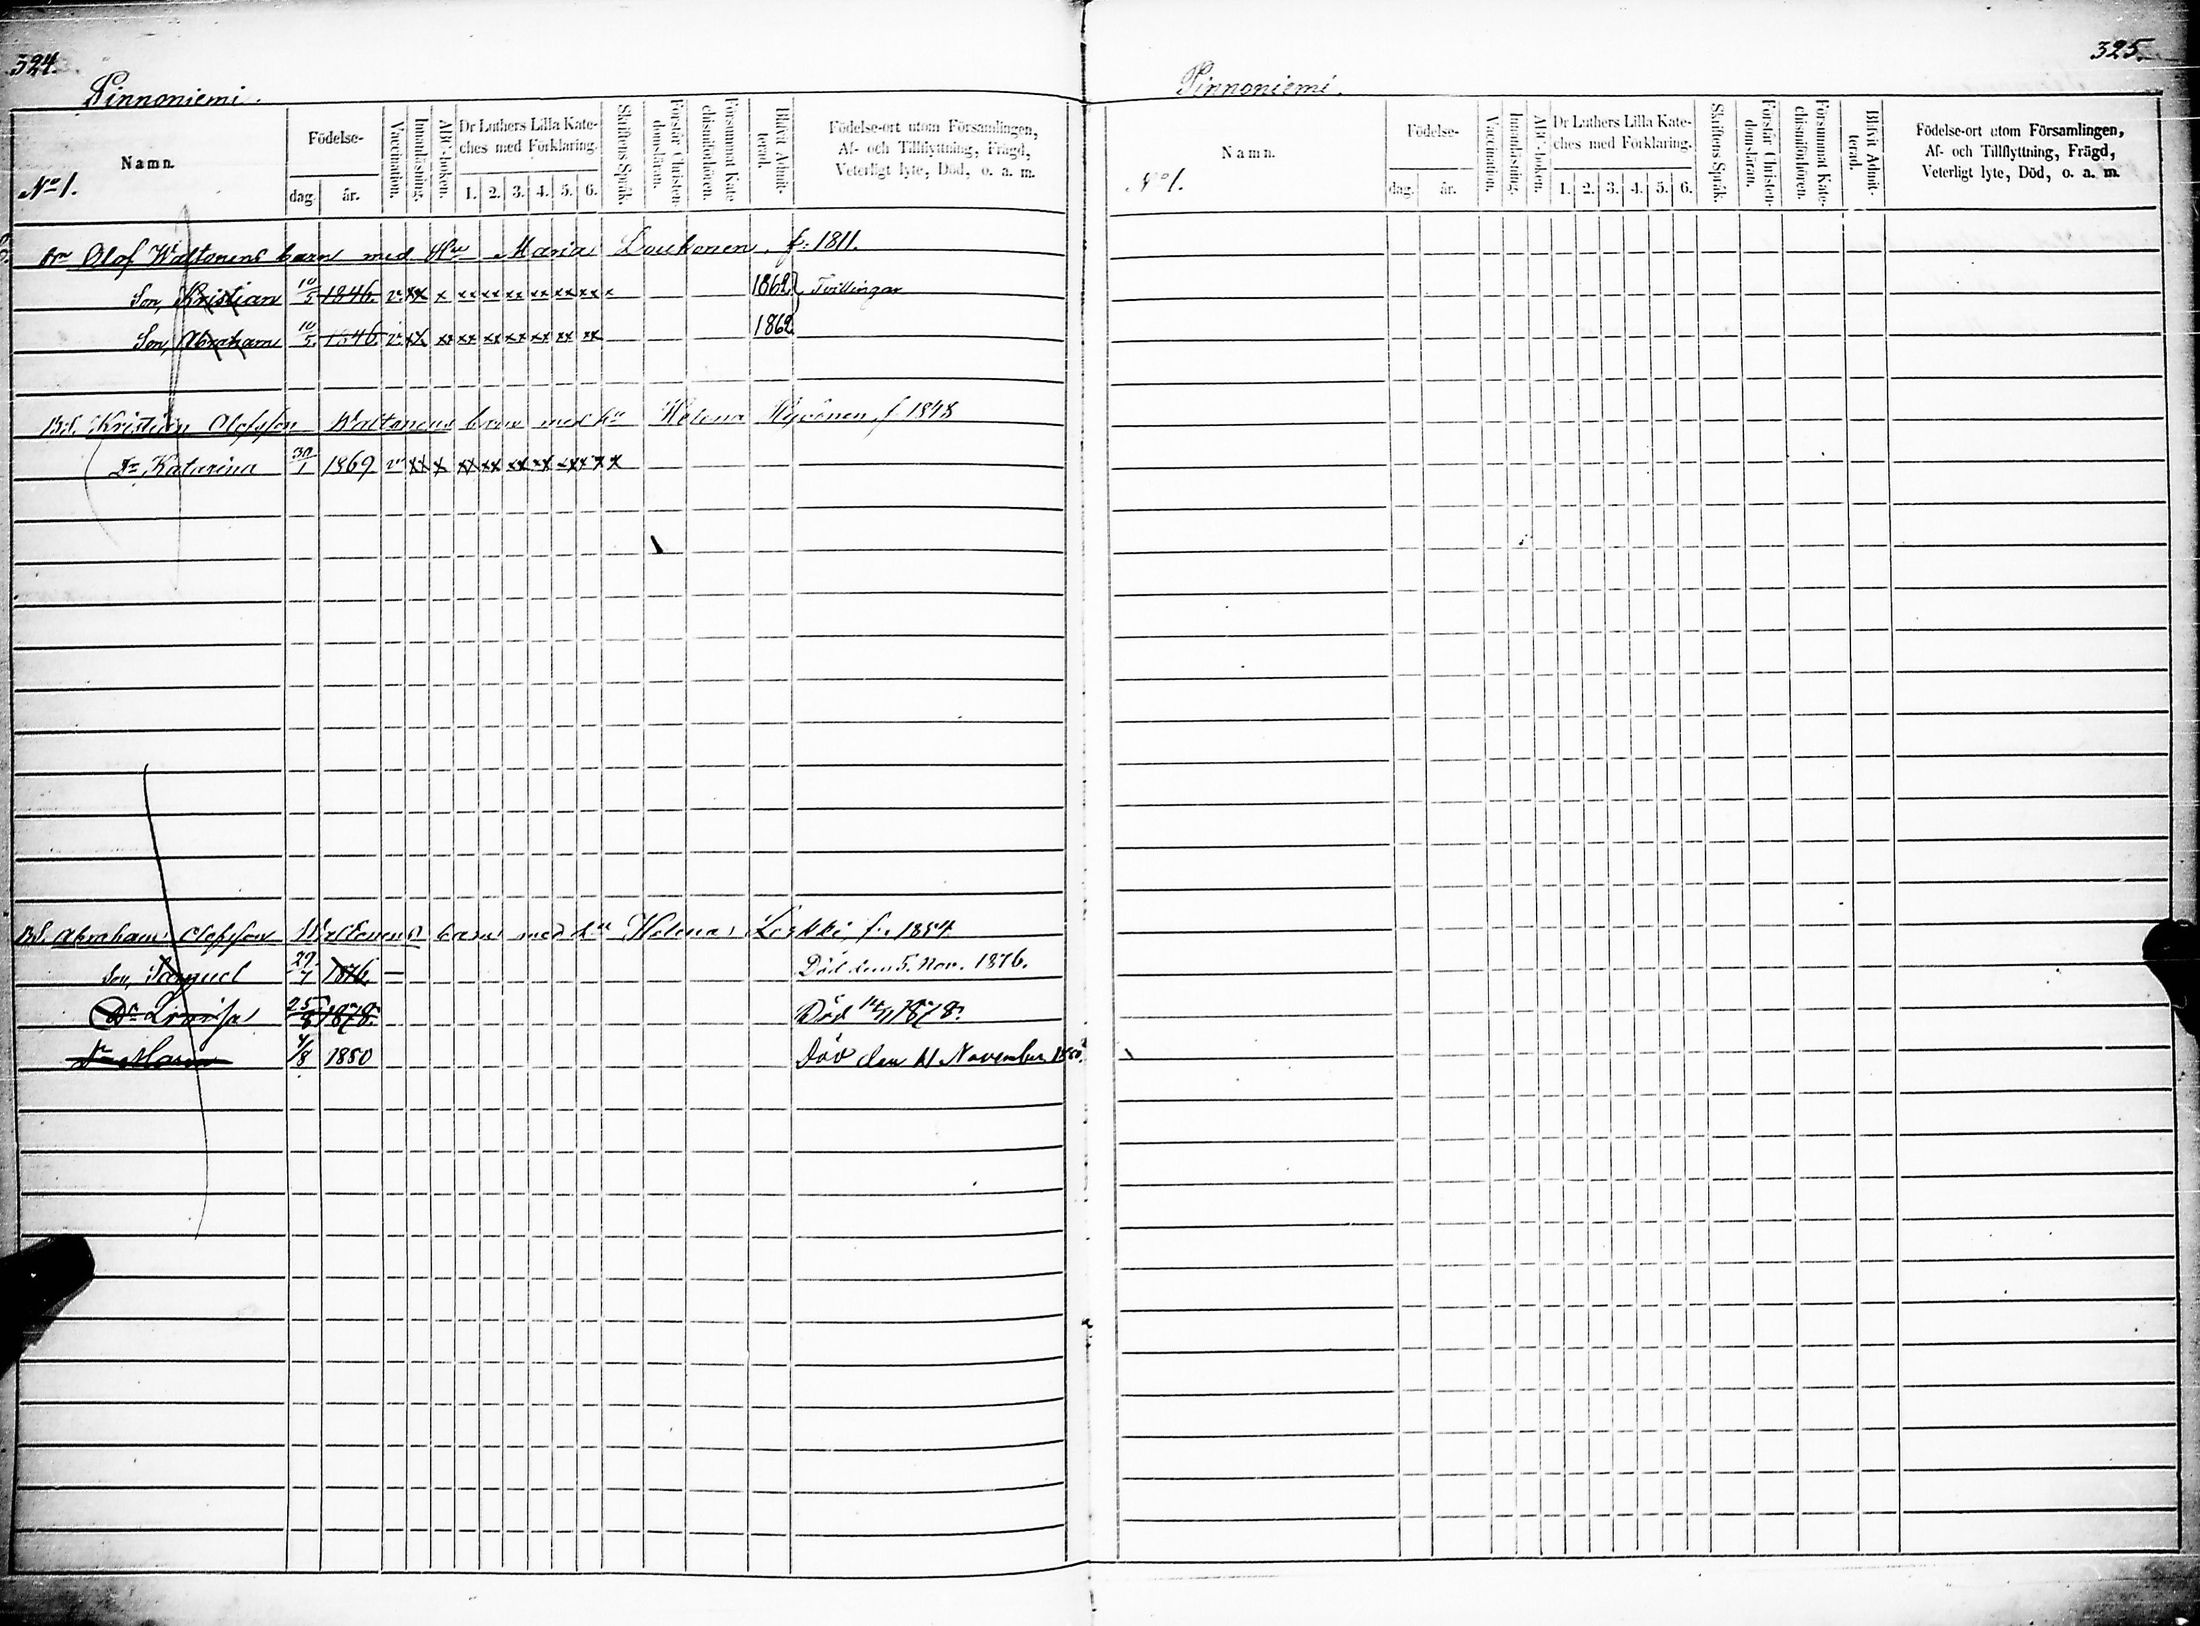 324.
Pinnoniemi.
Namn.
Födelse-
dag. år.
Vaccination.
Innanläsning.
ABC-boken.
Dr Luthers Lilla Kate-
ches med Förklaring.
1. 2. 3. 4. 5. 6.
Skriftens Språk.
Förstår Christen-
domsläran.
Försummat Kate-
chismiförhören.
Blifvit Admit-
terad.
Födelse-ort utom Församlingen,
Af- och Tillflyttning, Frägd,
Veterligt lyte, Död, o. a. m.
No 1.
Olof Waltonens barn med Hu Maria Loukonen, f. 1811.
Son, Kristian 10/5 1846. v. xx x xx xx xx xx xx xx x 1862 Tvillingar
Son, Abraham 10/5 1846 v. xx xx xx xx xx xx xx xx 1862
Kristian Olofsson Waltonens barn med hu Helena Hyvönen, f. 1848
Dr Katarina 30/1 1869 v xx x xx xx xx xx xx xx x
Abraham Olofsson Waltonens barn med hu Helena Leskki, f. 1854
Son, Samuel 29/7 1876. — Död den 5. Nov. 1876.
Dr Lovisa 25/8 1878. Död 14/11 1878.
Dr Maria 4/8 1880 Död den 11 November 1880.
325.
Pinnoniemi.
Namn.
Födelse-
dag. år.
Vaccination.
Innanläsning.
ABC-boken.
Dr Luthers Lilla Kate-
ches med Förklaring.
1. 2. 3. 4. 5. 6.
Skriftens Språk.
Förstår Christen-
domsläran.
Försummat Kate-
chismiförhören.
Blifvit Admit-
terad.
Födelse-ort utom Församlingen,
Af- och Tillflyttning, Frägd,
Veterligt lyte, Död, o. a. m.
No 1.